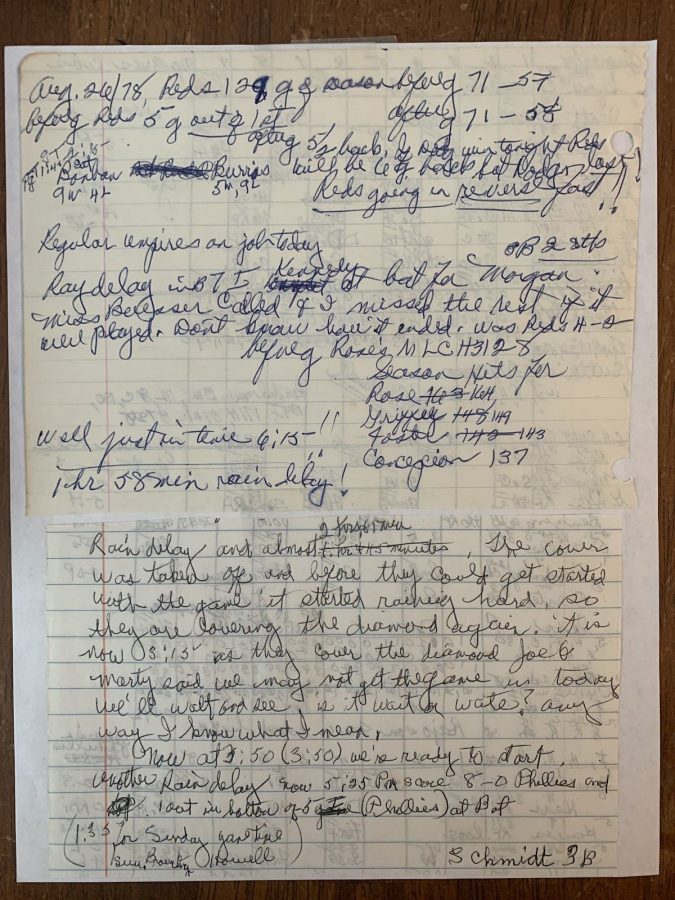 Aug. 26/78, Reds 129 g g season before g 71-57
before Reds 5 g out of 1st after g 71-58
after g 5½ back, if win tonight Reds
Bonham Burris will be 6 g back but Reds
9w 4L 5w, 9L
Reds going in reverse fast!!
Regular umpires on job today
SB 2 sths
Ray delay in B 7 I Kennedy at bat for Morgan
Miss called & I missed the rest if it
well played. Don't know how it ended. was Reds 4-0
before g Rose's MLCH 3128
Season Hits for
Rose 163 164,
Griffey 148 149
Foster 142 143
Concepcion 137
Well just in time 6:15!!
1 hr 58 min rain delay!
2 hours for men
Rain delay and almost 1 hr & 45 minutes, The cover
was taken off and before they could get started
with the game it started raining hard, so
they are covering the diamond again. it is
now 3:15 as they cover the diamond Joe &
Marty said we may not get the game in today
we'll wait and see. is it wait or wate? any
way I know what I mean,
Now at 3:50 (3:50) we're ready to start.
another Rain delay now 5:25 Pm score 8-0 Phillies and
1 out in bottom of 5 (Phillies) at Bat
(1:35 for Sunday game time
Howell)
Schmidt 3B